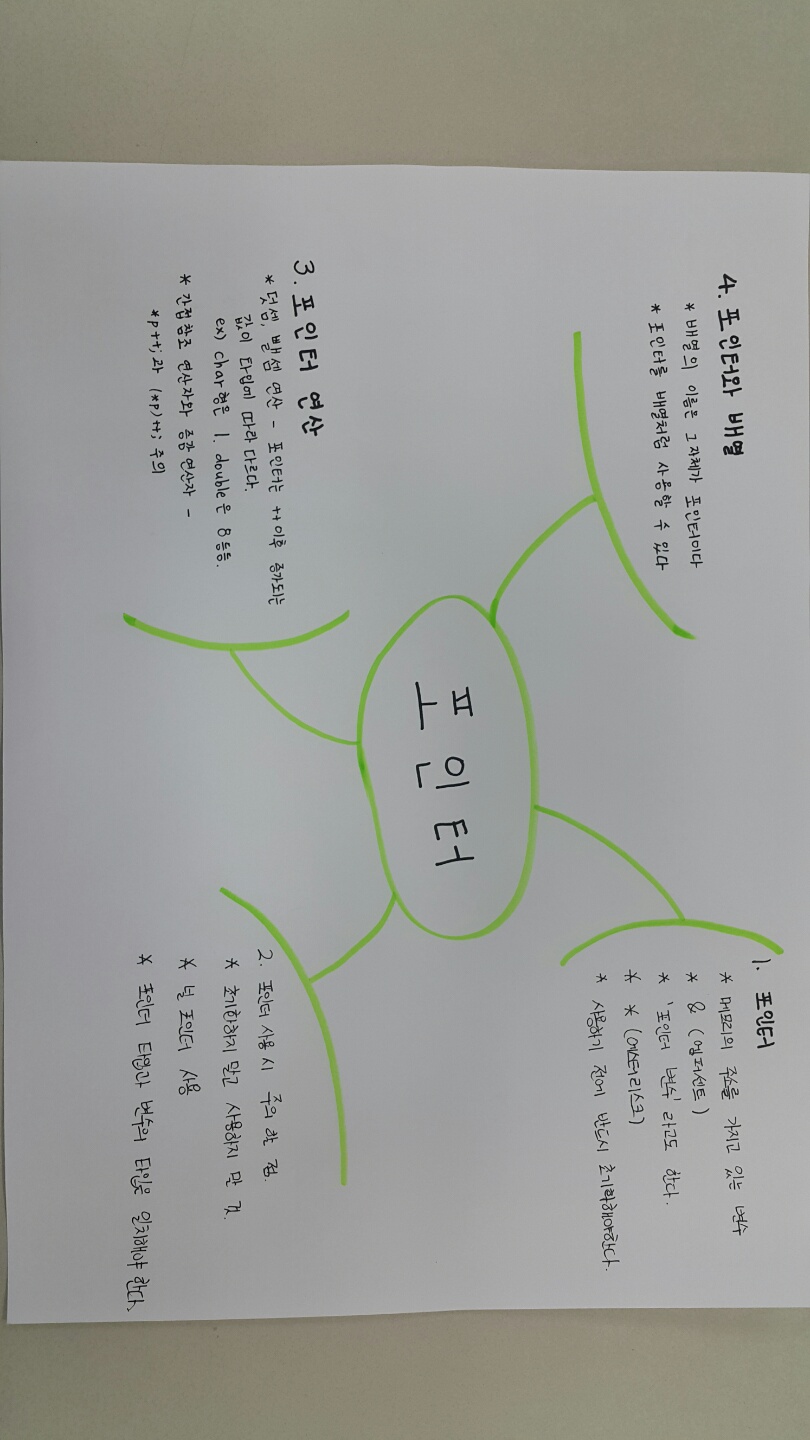 포인터
1. 포인터
* 메모리의 주소를 가지고 있는 변수
* & (엠퍼센트)
* '포인터 변수'라고도 한다.
* * (에스터리스크)
* 사용하기 전에 반드시 초기화해야한다.
2. 포인터 사용시 주의 할 점.
* 초기화하지 말고 사용하지 말 것.
* 널 포인터 사용
* 포인터 타입과 변수의 타입은 일치해야 한다.
3. 포인터 연산
* 덧셈, 뺄셈 연산 - 포인터는 ++이후 증가되는
값이 타입에 따라 다르다.
ex) char형은 1. double은 8 등등.
* 간접참조 연산자와 증감 연산자 -
*p++; 과 (*p)++; 주의
4. 포인터와 배열
* 배열의 이름은 그 자체가 포인터이다
* 포인터를 배열처럼 사용할 수 있다